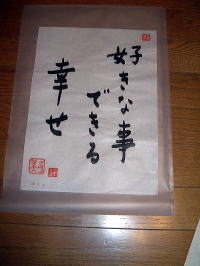 好きな事
できる
幸せ